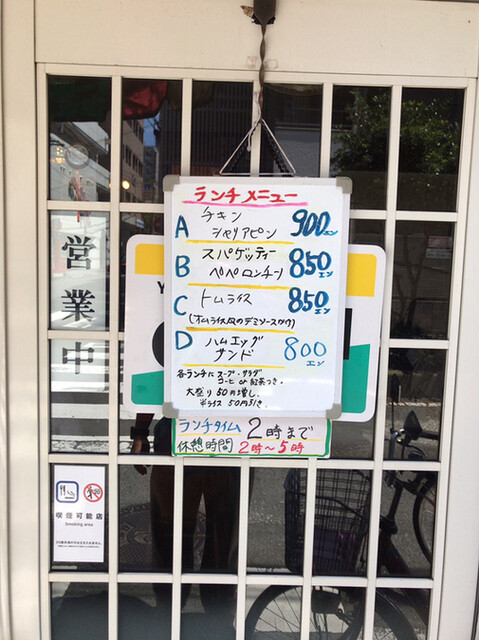 ランチメニュー
A チキン
シャリアピン 900エン
B スパゲッティー
ペペロンチーノ 850エン
C トムライス 850エン
D ハムエッグ
サンド 800エン
各ランチに スープ・サラダ
コーヒ or 紅茶つき。
大盛り50円増し。
半ライス 50円引き。
ランチタイム 2時まで
休憩時間 2時～5時
営業中
喫煙可能店